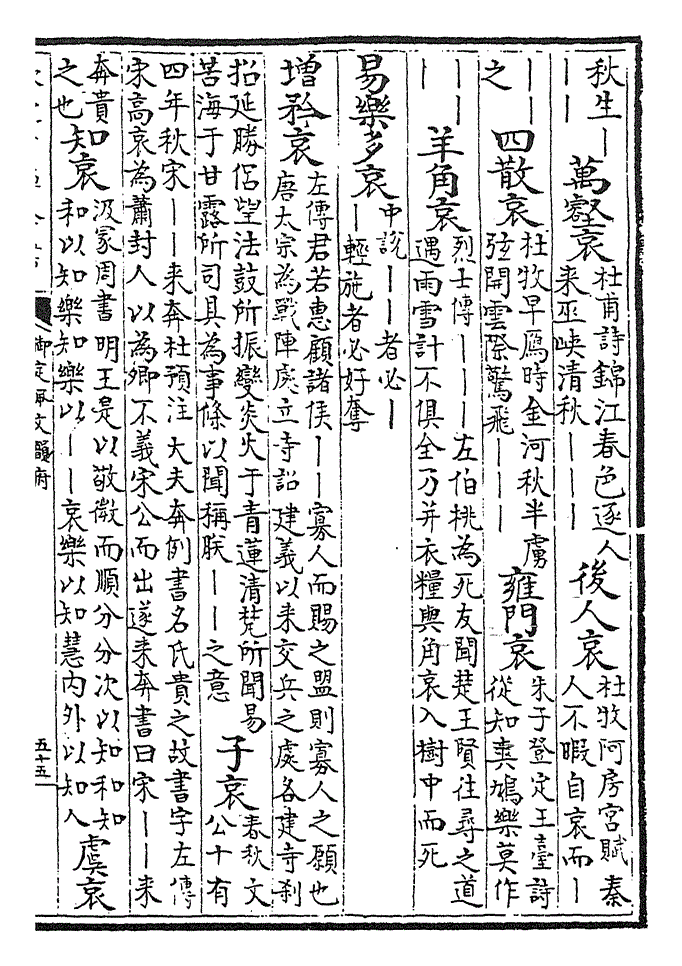 秋生｜
｜｜
萬壑哀
杜甫詩錦江春色逐人
來巫峽清秋｜｜｜
後人哀
杜牧阿房宮賦秦
人不暇自哀而｜
｜｜
之
四散哀
杜牧早鴈時金河秋半虜
弦開雲際驚飛｜｜｜
雍門哀
朱子登定王臺詩
從知爽鳩樂莫作
｜｜
｜
羊角哀
烈士傳｜｜｜左伯桃為死友聞楚王賢往尋之道
遇雨雪計不俱全乃并衣糧與角哀入樹中而死
易樂多哀
中說｜｜者必｜
｜輕施者必好奪
增矜哀
左傳君若惠顧諸侯｜｜寡人而賜之盟則寡人之願也
唐太宗為戰陣處立寺詔 建義以來交兵之處各建寺剎
招延勝侶望法鼓所振變炎火于青蓮清梵所聞易
苦海于甘露所司具為事條以聞稱朕｜｜之意
子哀
春秋文
公十有
四年秋宋｜｜來奔杜預注大夫奔例書名氏貴之故書字左傳
宋高哀為蕭封人以為卿不義宋公而出遂來奔書曰宋｜｜來
奔貴
之也
知哀
汲冢周書明王是以敬微而順分分次以知和知
和以知樂知樂以｜｜哀樂以知慧內外以知人
虞哀
御定佩文韻府
五十五